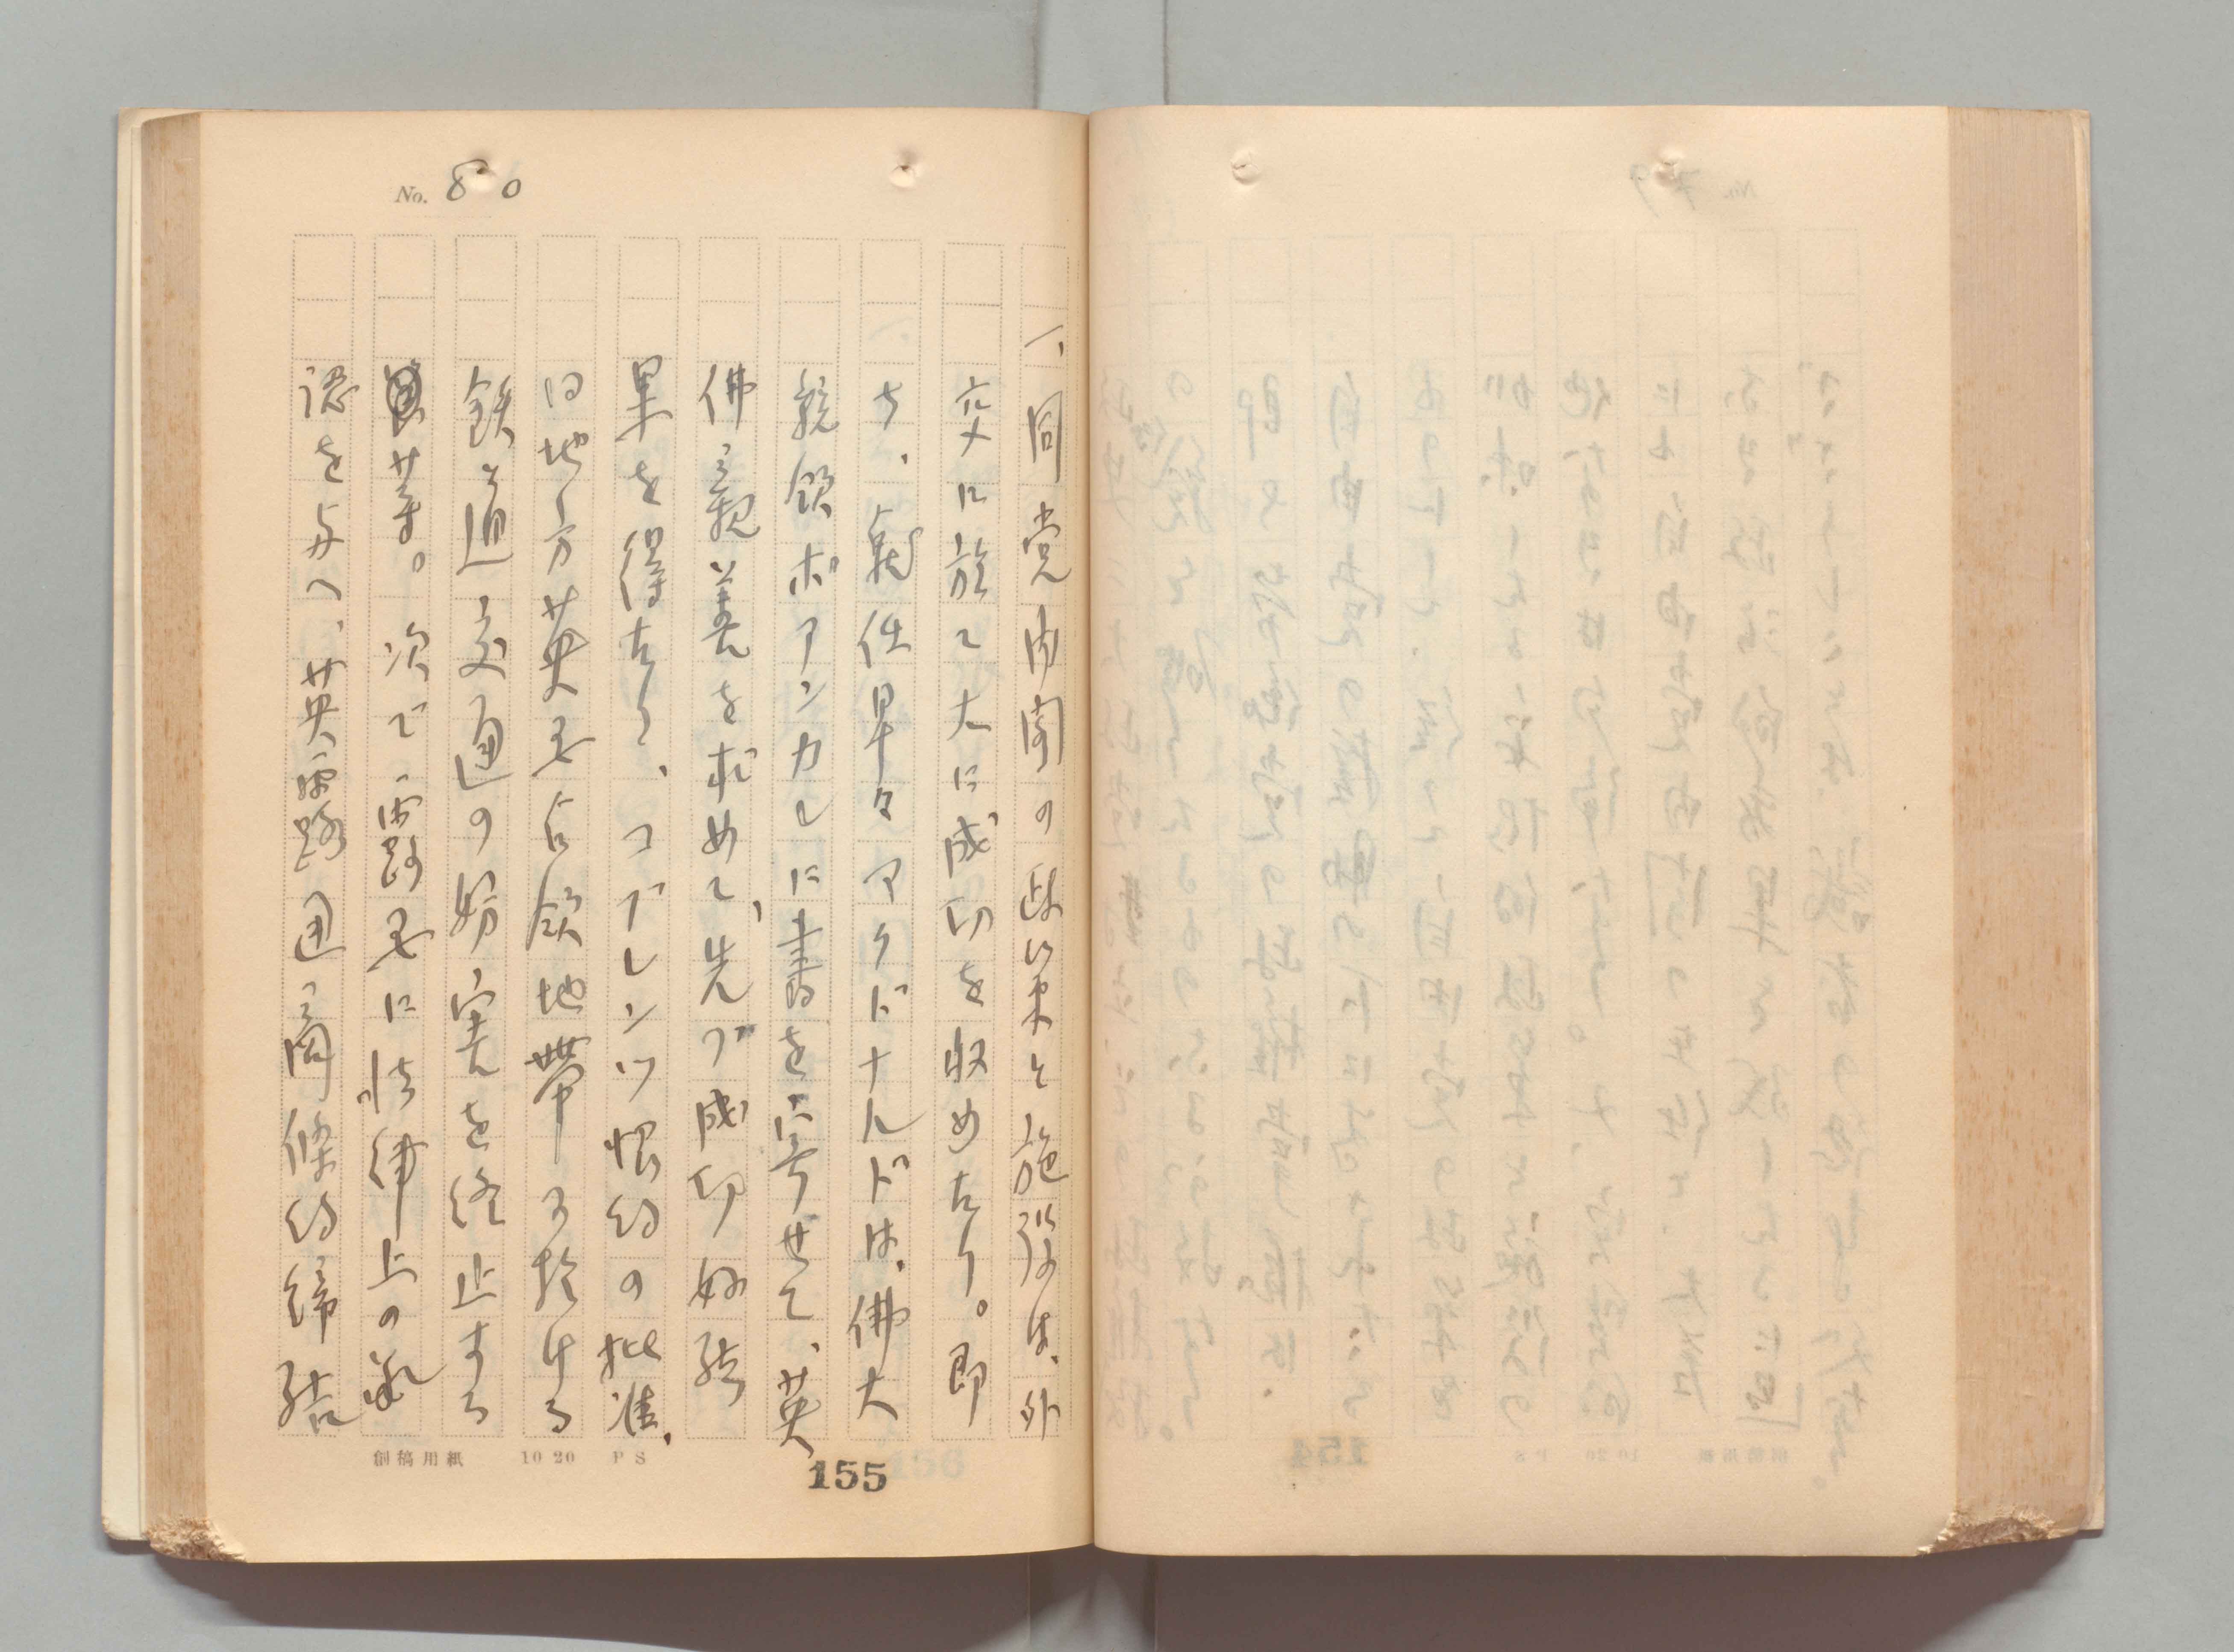 No. 80
一、同党内閣の政策と施設は、外
交に於て大に成功を収めたり。即
ち、就任早々マクドナルドは、佛大
統領ポアンカレに書を寄せて、英
佛親善を求めて、先づ成功好結
果を得たり、コブレンツ恊約の批准、
同地方英国占領地帯に於ける
鉄道交通の妨害を終止する
等。次で露国に法律上の承
認を与へ、英露通商條約締結
創稿用紙 10 20 PS
155